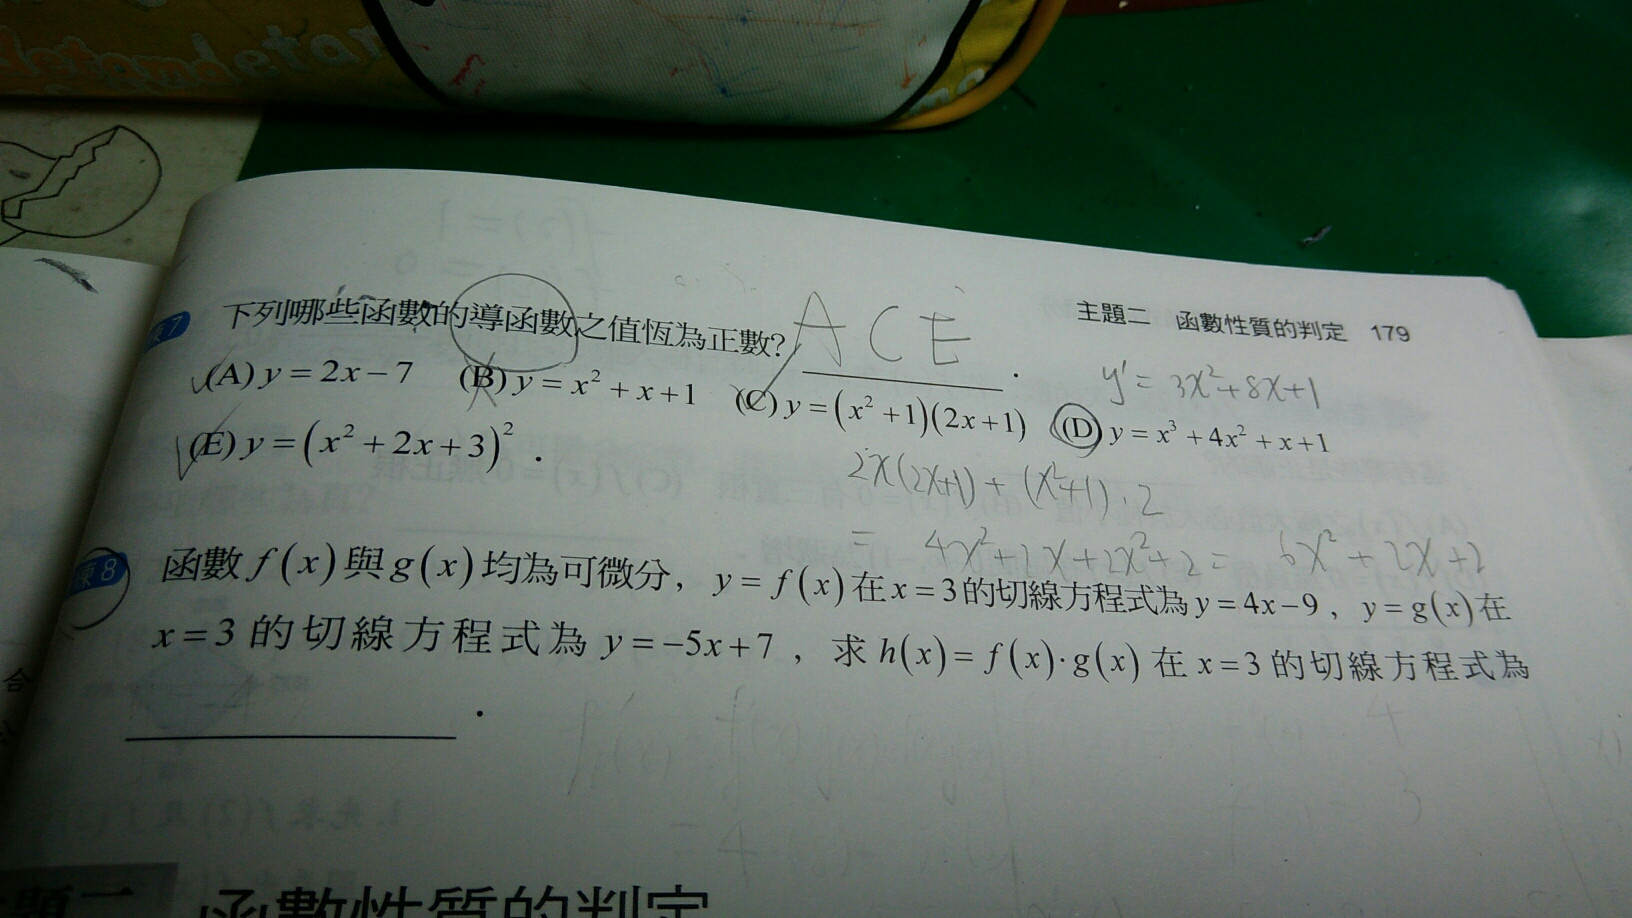 主題二 函數性質的判定 179
7 下列哪些函數的導函數之值恆為正數? ACE .
y' = 3x²+8x+1
(A) y = 2x − 7 (B) y = x² + x + 1 (C) y = (x² + 1)(2x + 1) (D) y = x³ + 4x² + x + 1
(E) y = (x² + 2x + 3)² .
2x(2x+1) + (x²+1)·2
= 4x²+2x+2x²+2 = 6x²+2x+2
練8 函數 f(x) 與 g(x) 均為可微分, y = f(x) 在 x = 3 的切線方程式為 y = 4x − 9, y = g(x) 在
x = 3 的切線方程式為 y = −5x + 7 , 求 h(x) = f(x)·g(x) 在 x = 3 的切線方程式為
.
函數性質的判定